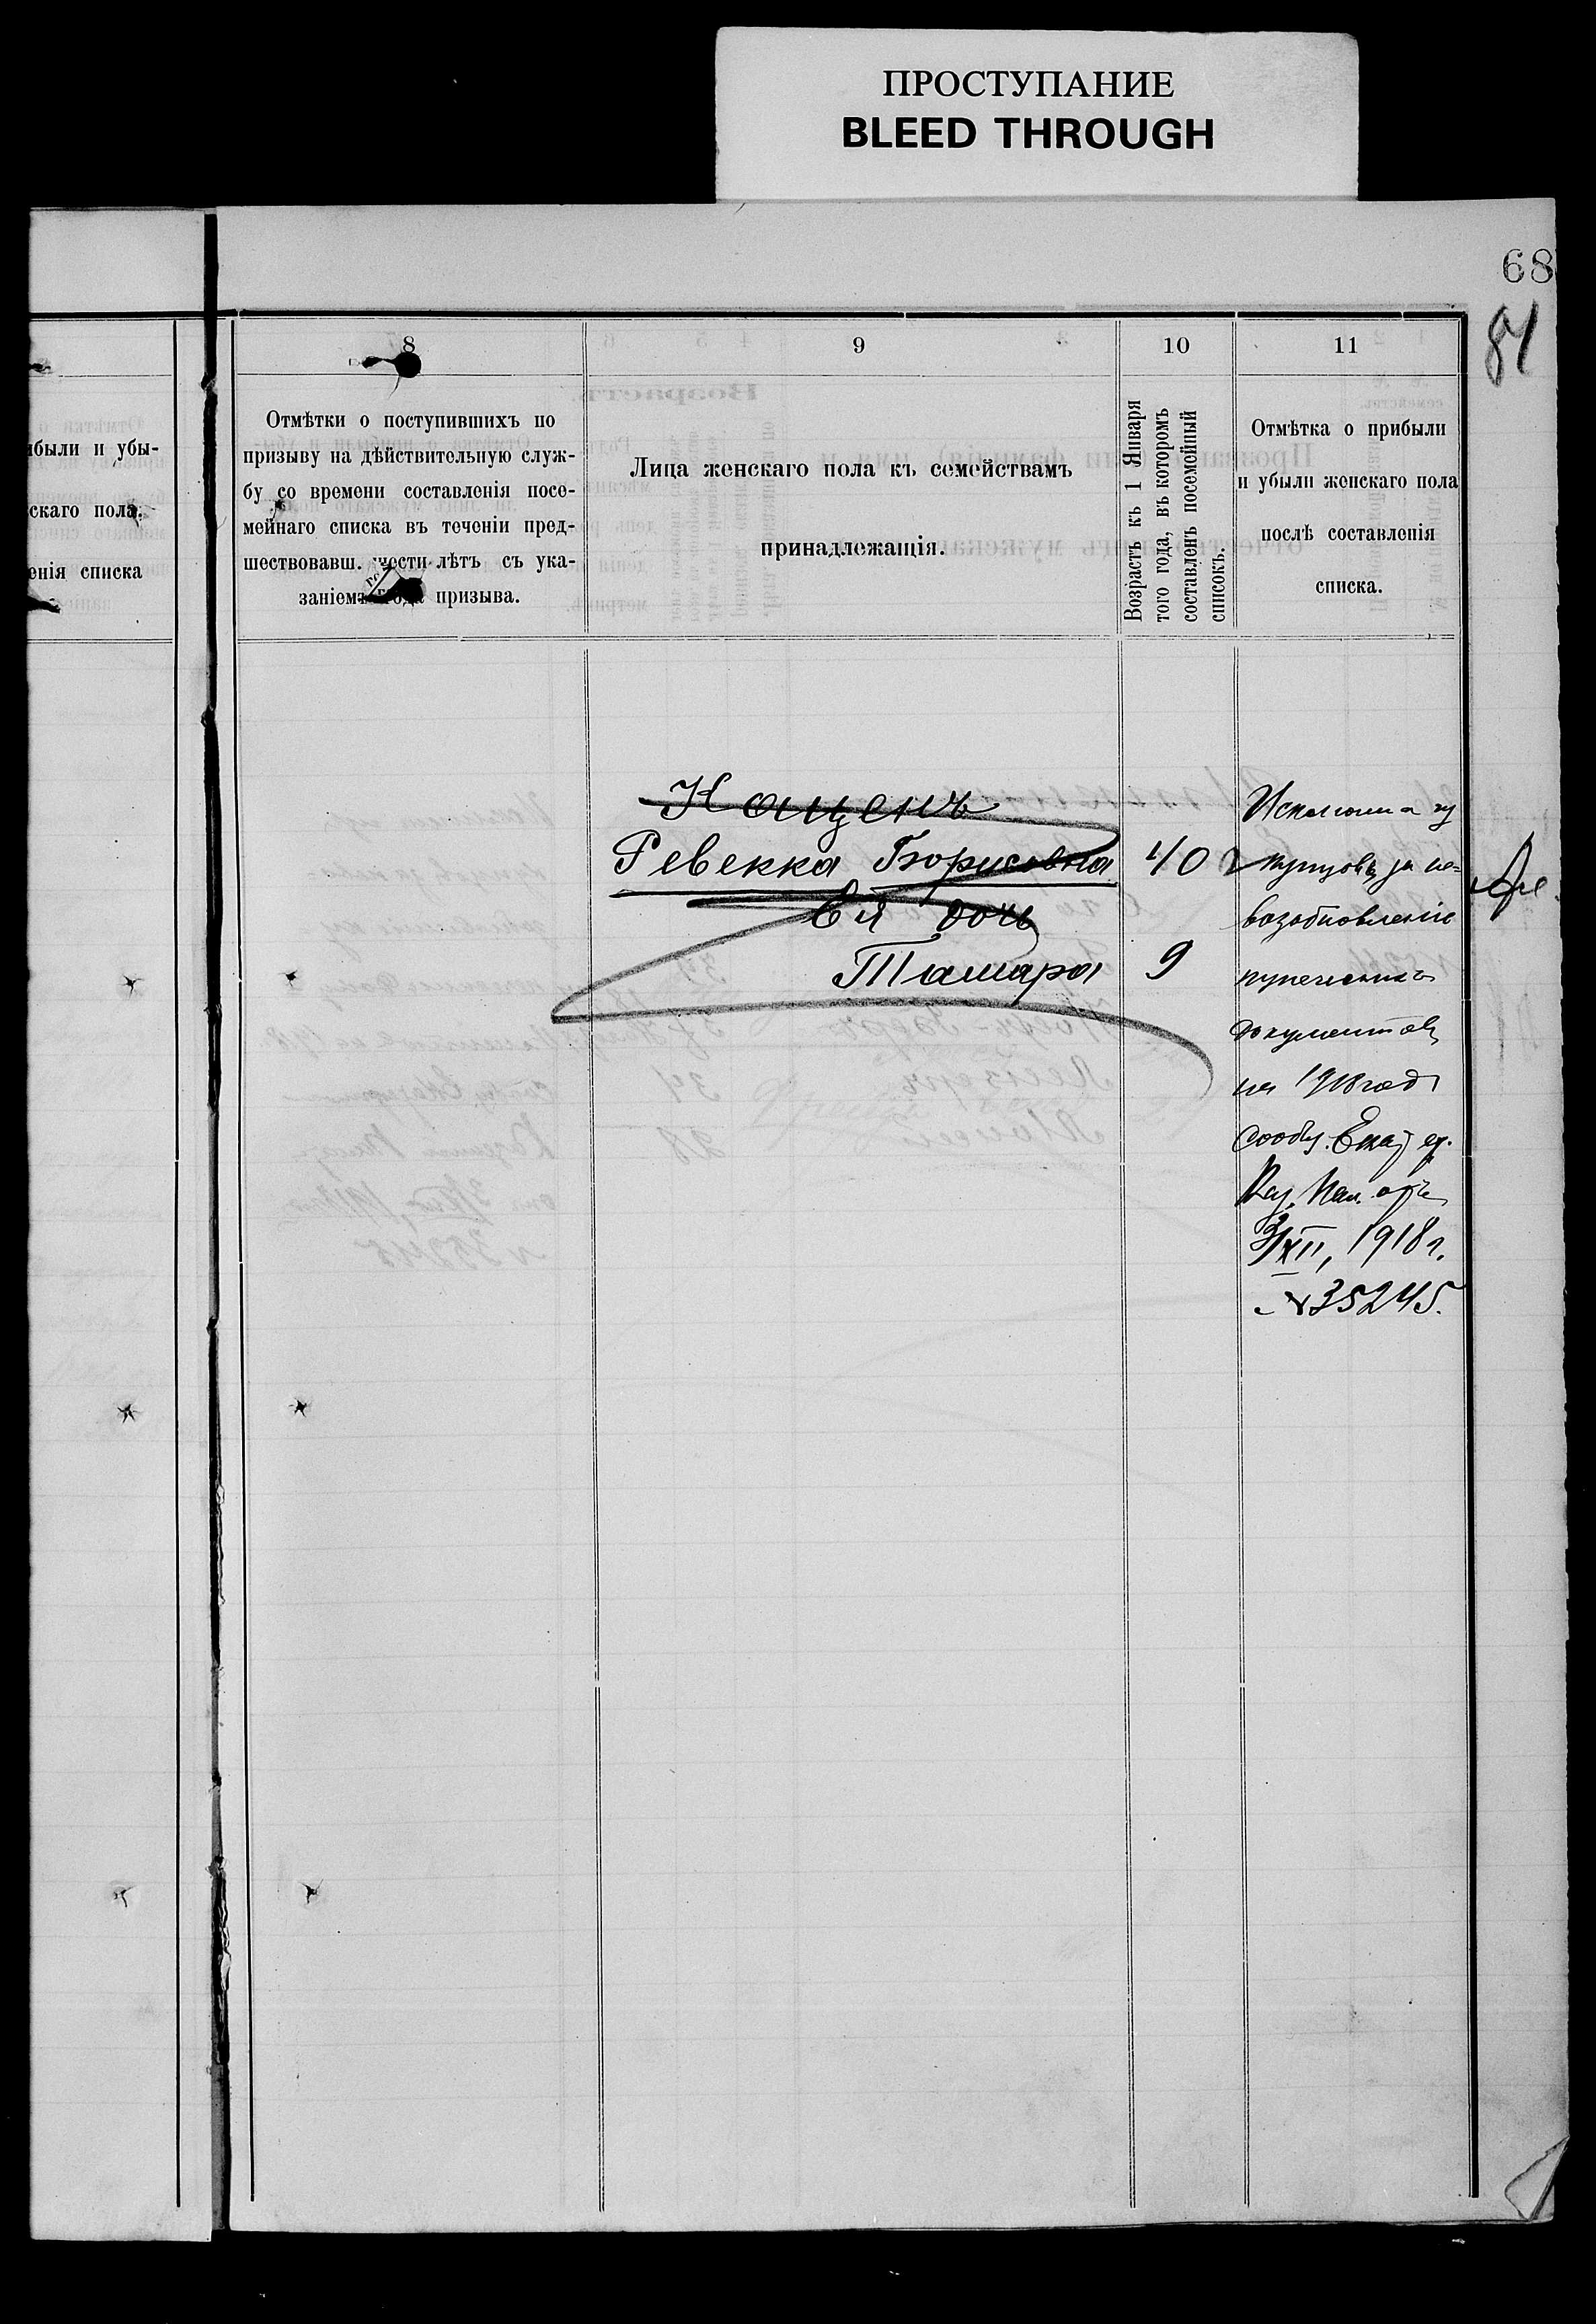 ПРОСТУПАНИЕ
BLEED THROUGH
68
81
ибыли и убы-
скаго пола,
енія списка
8
Отмѣтки о поступившихъ по
призыву на дѣйствительную служ-
бу со времени составленія посе-
мейнаго списка въ теченіи пред-
шествовавш. шести лѣтъ съ ука-
заніемъ года призыва.
9
Лица женскаго пола къ семействамъ
принадлежащія.
10
Возрастъ къ 1 Января
того года, въ которомъ
составленъ посемейный
списокъ.
11
Отмѣтка о прибыли
и убыли женскаго пола
послѣ составленія
списка.
Каценъ
Ревекка Борисовна 40
Ея дочь
Тамара 9
Исключена изъ
купцовъ за не-
возобновленіе
купеческихъ
документовъ
на 1918 годъ
сообщ. Екат ер.
Каз. Пал. отъ
3/XII, 1918 г.
№ 35245.